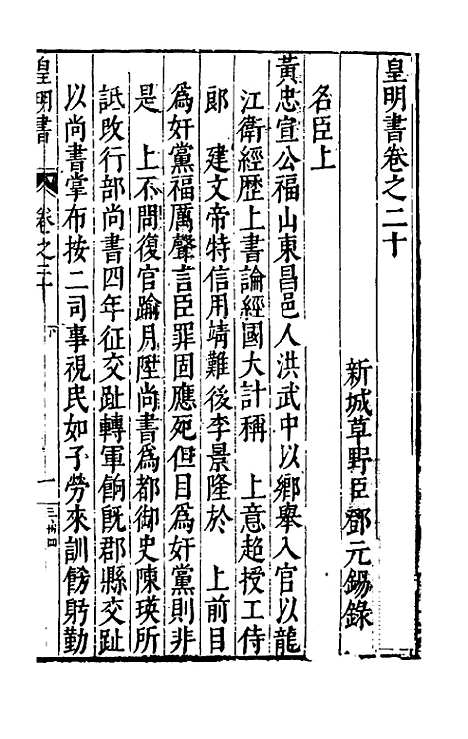 皇明書卷之二十
新城草野臣鄧元錫錄
名臣上
黃忠宣公福山東昌邑人洪武中以鄉舉入官以龍
江衛經歷上書論經國大計稱 上意超授工侍
郎 建文帝特信用靖難後李景隆於 上前目
為奸黨福厲聲言臣罪固應死但目為奸黨則非
是 上不問復官踰月陞尚書為都御史陳瑛所
詆改行部尚書四年征交趾轉軍餉既郡縣交趾
以尚書掌布按二司事視民如子勞來訓飭躬勤
皇明書 卷之二十 下 一